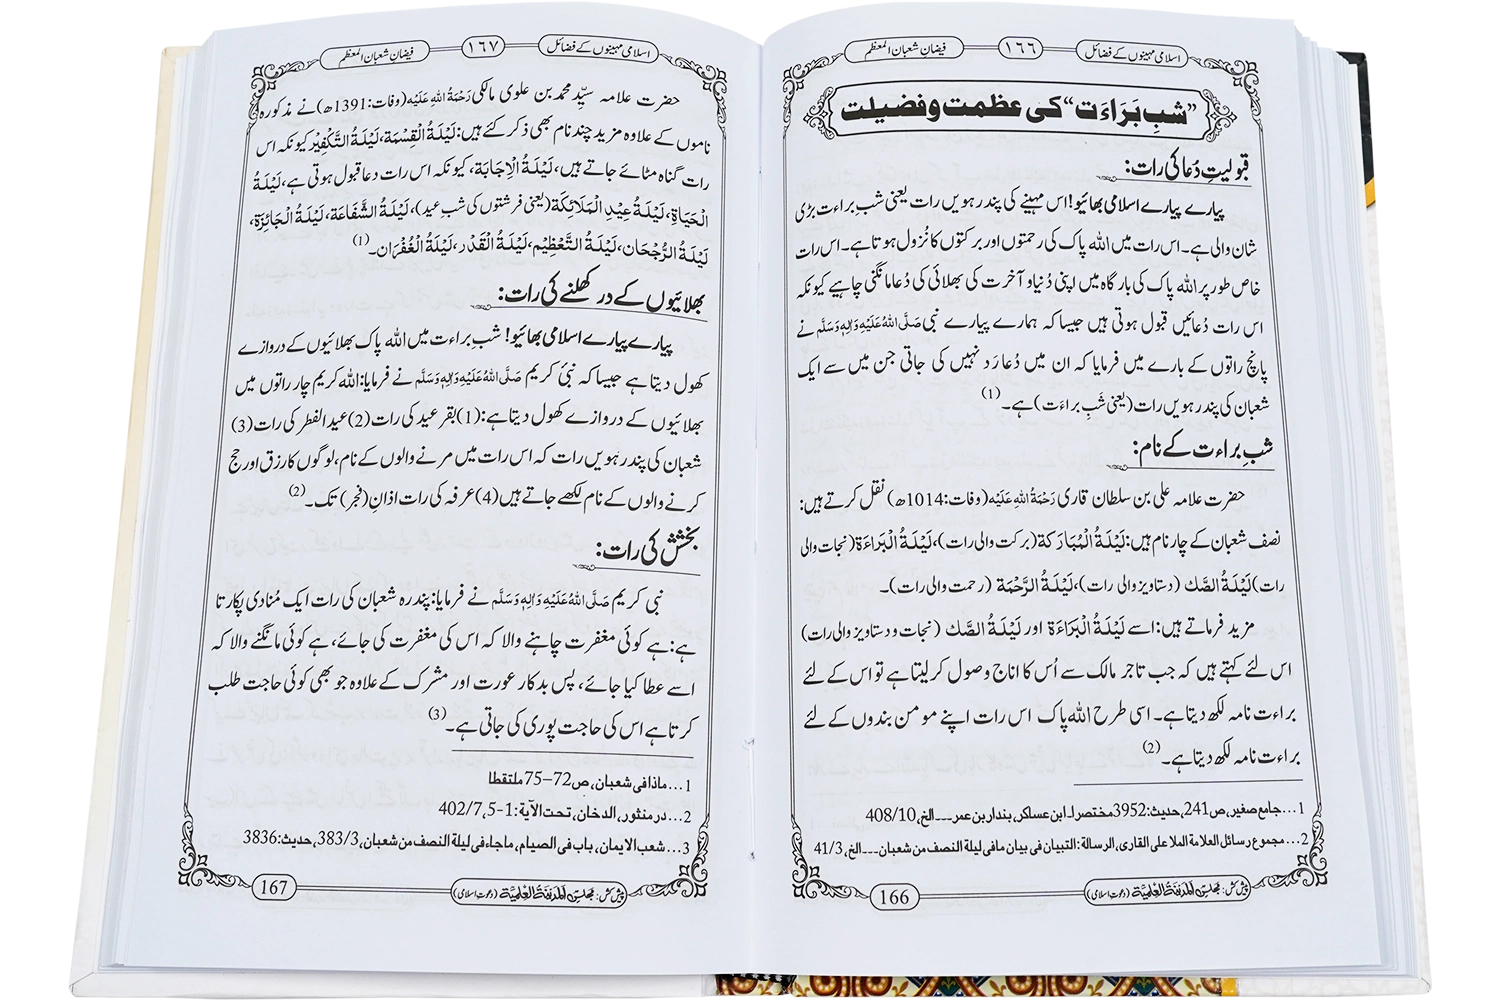 اسلامی مہینوں کے فضائل
١٦٦
فیضانِ شعبان المعظم
”شبِ بَرَاءَت“ کی عظمت و فضیلت
قبولیتِ دُعا کی رات:
پیارے پیارے اسلامی بھائیو! اس مہینے کی پندرہویں رات یعنی شبِ براءت بڑی
شان والی ہے۔ اس رات میں اللہ پاک کی رحمتوں اور برکتوں کا نُزول ہوتا ہے۔ اس رات
خاص طور پر اللہ پاک کی بارگاہ میں اپنی دُنیا و آخرت کی بھلائی کی دُعا مانگنی چاہیے کیونکہ
اس رات دُعائیں قبول ہوتی ہیں جیسا کہ ہمارے پیارے نبی صَلَّی اللہُ عَلَیْہِ وَاٰلِہٖ وَسَلَّم نے
پانچ راتوں کے بارے میں فرمایا کہ ان میں دُعا رَد نہیں کی جاتی جن میں سے ایک
شعبان کی پندرہویں رات (یعنی شَبِ براءت) ہے۔ (1)
شبِ براءت کے نام:
حضرت علامہ علی بن سلطان قاری رَحْمَۃُ اللہِ عَلَیْہ (وفات:1014ھ) نقل کرتے ہیں:
نصف شعبان کے چار نام ہیں: لَیْلَۃُ الْمُبَارَکَۃ (برکت والی رات)، لَیْلَۃُ الْبَرَاءَۃ (نجات والی
رات) لَیْلَۃُ الصَّك (دستاویز والی رات)، لَیْلَۃُ الرَّحْمَۃ (رحمت والی رات)۔
مزید فرماتے ہیں: اسے لَیْلَۃُ الْبَرَاءَۃ اور لَیْلَۃُ الصَّك (نجات و دستاویز والی رات)
اس لئے کہتے ہیں کہ جب تاجر مالک سے اُس کا اناج وصول کر لیتا ہے تو اس کے لئے
براءت نامہ لکھ دیتا ہے۔ اسی طرح اللہ پاک اس رات اپنے مومن بندوں کے لئے
براءت نامہ لکھ دیتا ہے۔ (2)
1... جامع صغیر، ص241، حدیث:3952 مختصرا۔ ابن عساکر، بندار بن عمر۔۔۔ الخ، 408/10
2... مجموع رسائل العلامة الملا علی القاری، الرسالة: التبیان فی بیان مافی لیلة النصف من شعبان۔۔۔ الخ، 41/3
پیش کش: مجلس اَلْمَدِیْنَۃُ الْعِلْمِیَّۃ (دعوتِ اسلامی)
166
اسلامی مہینوں کے فضائل
١٦٧
فیضانِ شعبان المعظم
حضرت علامہ سیِّد محمد بن علوی مالکی رَحْمَۃُ اللہِ عَلَیْہ (وفات:1391ھ) نے مذکورہ
ناموں کے علاوہ مزید چند نام بھی ذکر کئے ہیں: لَیْلَۃُ الْقِسْمَۃ، لَیْلَۃُ التَّکْفِیْر کیونکہ اس
رات گناہ مٹائے جاتے ہیں، لَیْلَۃُ الْاِجَابَۃ، کیونکہ اس رات دعا قبول ہوتی ہے، لَیْلَۃُ
الْحَیَاۃ، لَیْلَۃُ عِیْدِ الْمَلَائِکَۃ (یعنی فرشتوں کی شبِ عید)، لَیْلَۃُ الشَّفَاعَۃ، لَیْلَۃُ الْجَائِزَۃ،
لَیْلَۃُ الرُّجْحَان، لَیْلَۃُ التَّعْظِیْم، لَیْلَۃُ الْقَدْر، لَیْلَۃُ الْغُفْرَان۔ (1)
بھلائیوں کے در کھلنے کی رات:
پیارے پیارے اسلامی بھائیو! شبِ براءت میں اللہ پاک بھلائیوں کے دروازے
کھول دیتا ہے جیسا کہ نبیِّ کریم صَلَّی اللہُ عَلَیْہِ وَاٰلِہٖ وَسَلَّم نے فرمایا: اللہ کریم چار راتوں میں
بھلائیوں کے دروازے کھول دیتا ہے: (1) بقر عید کی رات (2) عید الفطر کی رات (3)
شعبان کی پندرہویں رات کہ اس رات میں مرنے والوں کے نام، لوگوں کا رزق اور حج
کرنے والوں کے نام لکھے جاتے ہیں (4) عرفہ کی رات اذانِ (فجر) تک۔ (2)
بخشش کی رات:
نبی کریم صَلَّی اللہُ عَلَیْہِ وَاٰلِہٖ وَسَلَّم نے فرمایا: پندرہ شعبان کی رات ایک مُنادی پکارتا
ہے: ہے کوئی مغفرت چاہنے والا کہ اس کی مغفرت کی جائے، ہے کوئی مانگنے والا کہ
اسے عطا کیا جائے، پس بدکار عورت اور مشرک کے علاوہ جو بھی کوئی حاجت طلب
کرتا ہے اس کی حاجت پوری کی جاتی ہے۔ (3)
1... ماذا فی شعبان، ص72–75 ملتقطا
2... در منثور، الدخان، تحت الآیة:1-5، 402/7
3... شعب الایمان، باب فی الصیام، ماجاء فی لیلة النصف من شعبان، 383/3، حدیث:3836
پیش کش: مجلس اَلْمَدِیْنَۃُ الْعِلْمِیَّۃ (دعوتِ اسلامی)
167